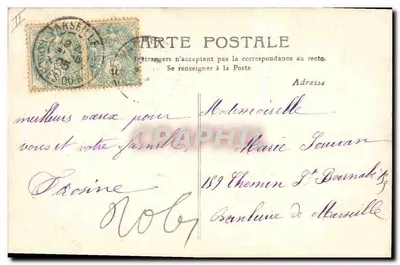 II
CARTE POSTALE
étrangers n'acceptent pas la correspondance au recto.
Se renseigner à la Poste
Adresse
MARSEILLE
meilleurs vœux pour
vous et votre famille
Frosine
Mademoiselle
Marie
159 Chemin St Barnabé
Banlieue de Marseille